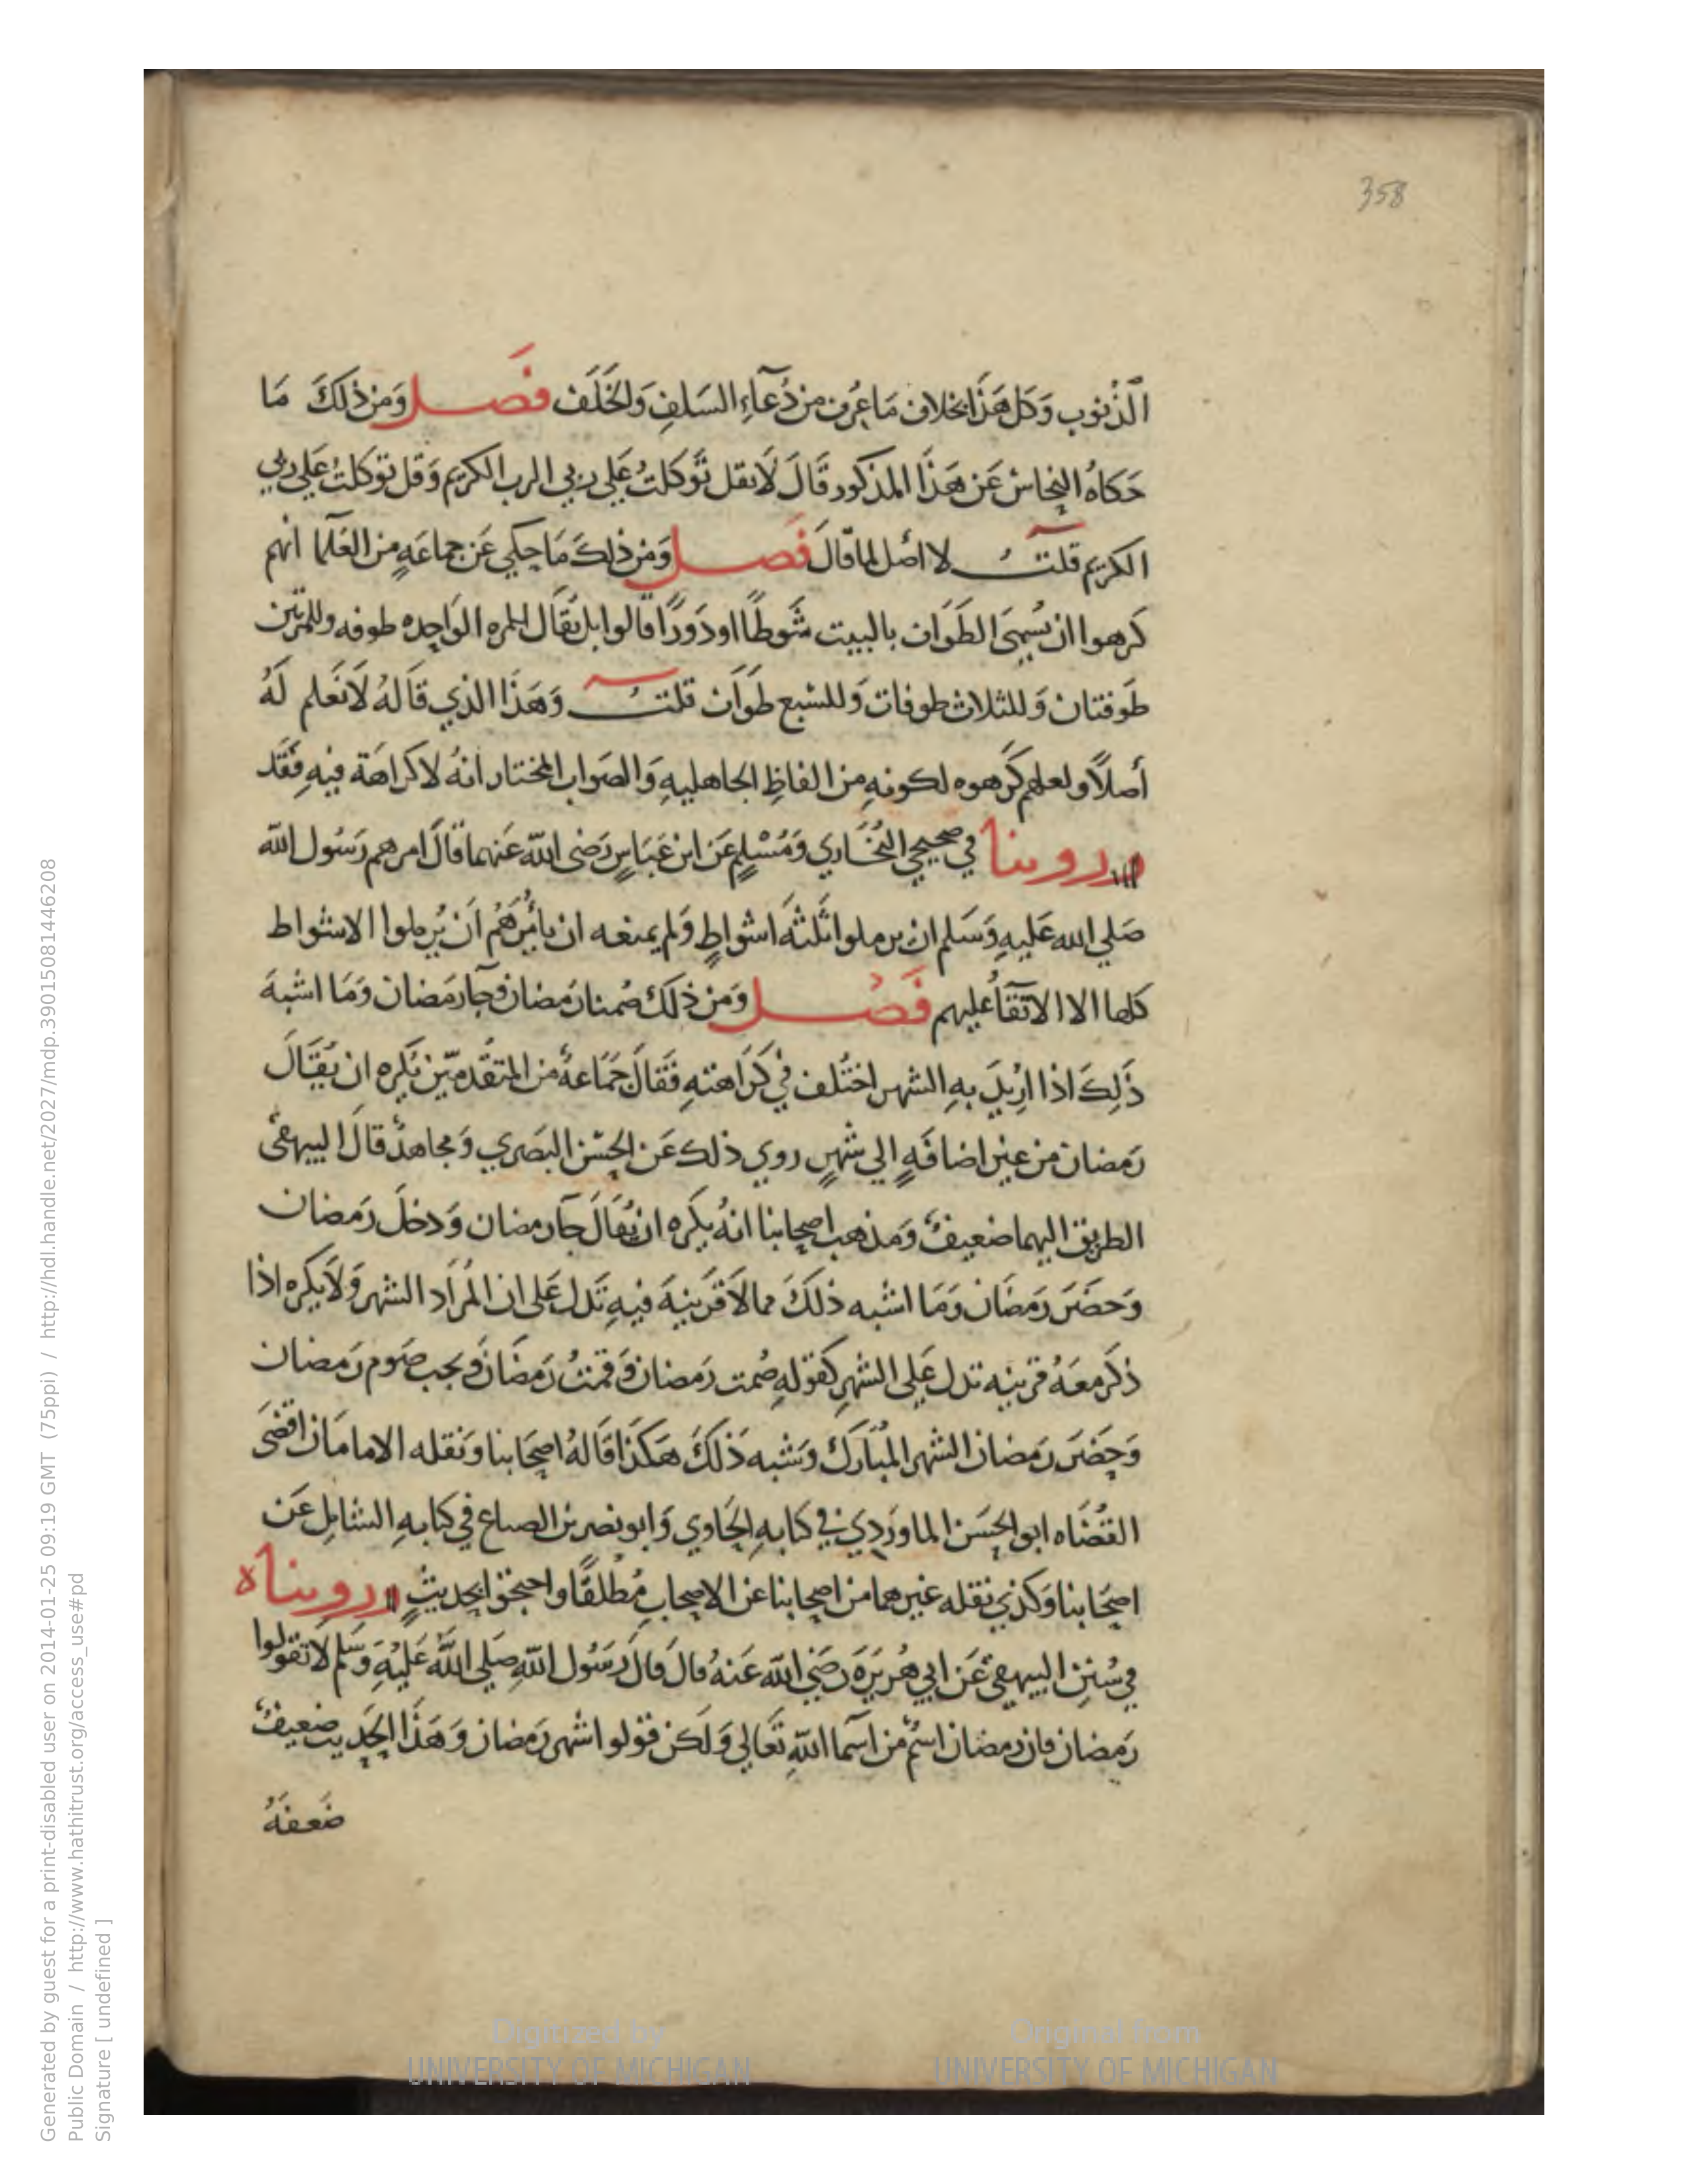 358
الذنوب وَكل هَذَا بخلاف مَا عُرف من دُعَآءِ السَلفِ وَالخَلَف فَصل وَمن ذلكَ مَا
حَكاهُ النحاسُ عَن هَذَا المذكور قَالَ لَا تقل تَوكلتُ عَلي ربي الرب الكريم وَقل توكلتُ عَلي ربي
الكريم قلتُ لا اصل لما قالَ فَصل وَمن ذلكَ مَا حكي عَن جماعَةٍ من العُلما انهم
كرهوا ان يُسمي الطَوَاف بالبيت شَوطًا اودَورًا قالوا بل يُقَال للمره الوَاحِده طوفه وللمرتين
طَوفتان وَللثلاث طوفات وَللسبع طَوَاف قلتُ وَهَذَا الذي قَالهُ لَا نَعلم لَهُ
أصلاً ولعلهم كَرهوه لكونهِ من الفاظِ الجاهليهِ وَالصَواب المختار انهُ لا كراهَة فيهِ فَقَد
روينا في صحيحي البُخَاري وَمُسْلمٍ عَن ابن عَبَاسٍ رَضى الله عَنهما قالَ امرهم رَسُول الله
صَلي الله عَليهِ وَسَلم ان يرملوا ثَلثَهَ اشواطٍ وَلم يمنعه ان يامُرَهُمْ اَن يُرملوا الاشواط
كلها الا الابقَآ عليهم فَصُل وَمن ذلك صُمنا رَمضان وجآ رَمضان وَمَا اشبهَ
ذَلِكَ اذا اريدَ بهِ الشهر اختُلف في كَرَاهتهِ فَقالَ جَمَاعَةٌ من المتقَدمين يُكره ان يُقَالَ
رَمضان من غير اضافَهٍ الي شَهرٍ روي ذلك عَن الحسَن البَصري وَمجاهدٌ قالَ البيهقى
الطريق اليهما ضعيفٌ وَمذهب اصحابنا انهُ يكره ان يُقَالَ جآ رمضان وَدخلَ رَمضان
وَحضَرَ رَمضَان وَمَا اشبه ذلكَ مما لا قَرينهَ فيهِ تَدل عَلى ان المُرَاد الشهر وَلَا يكره اذا
ذكر معَهُ قرينه تدل عَلي الشهر كقولهِ صُمت رَمضان وَقمتُ رَمضَان وَيجب صَوم رَمضان
وَحضَرَ رَمضان الشهر المُبَارَك وَشبه ذَلكَ هَكذا قَالهُ اصحَابنا وَنقله الامامَان اقضَى
القُضَاه ابو الحسَن الماوردي في كتابهِ الحَاوي وَابو نصر بن الصباغ في كتابهِ الشامل عَن
اصحَابنا وَكذي نقله غيرهما من اصحابنا عن الاصحابِ مُطلقًا واحتجوا بحديثٍ رويناه
في سُننِ البيهقي عَن ابي هُرَيرَة رَضي الله عَنهُ قال قالَ رَسُول الله صَلي الله عَليهِ وَسَلم لا تقولوا
رَمضان فان رمضان اسْم من اسمآ اللهِ تَعَالي وَلكن قولوا اشهر رَمضان وَهَذَا الحَديث ضعيفٌ
ضَعفَهُ
Generated by guest for a print-disabled user on 2014-01-25 09:19 GMT (75ppi) / http://hdl.handle.net/2027/mdp.39015081446208
Public Domain / http://www.hathitrust.org/access_use#pd
Signature [ undefined ]
Digitized by
UNIVERSITY OF MICHIGAN
Original from
UNIVERSITY OF MICHIGAN